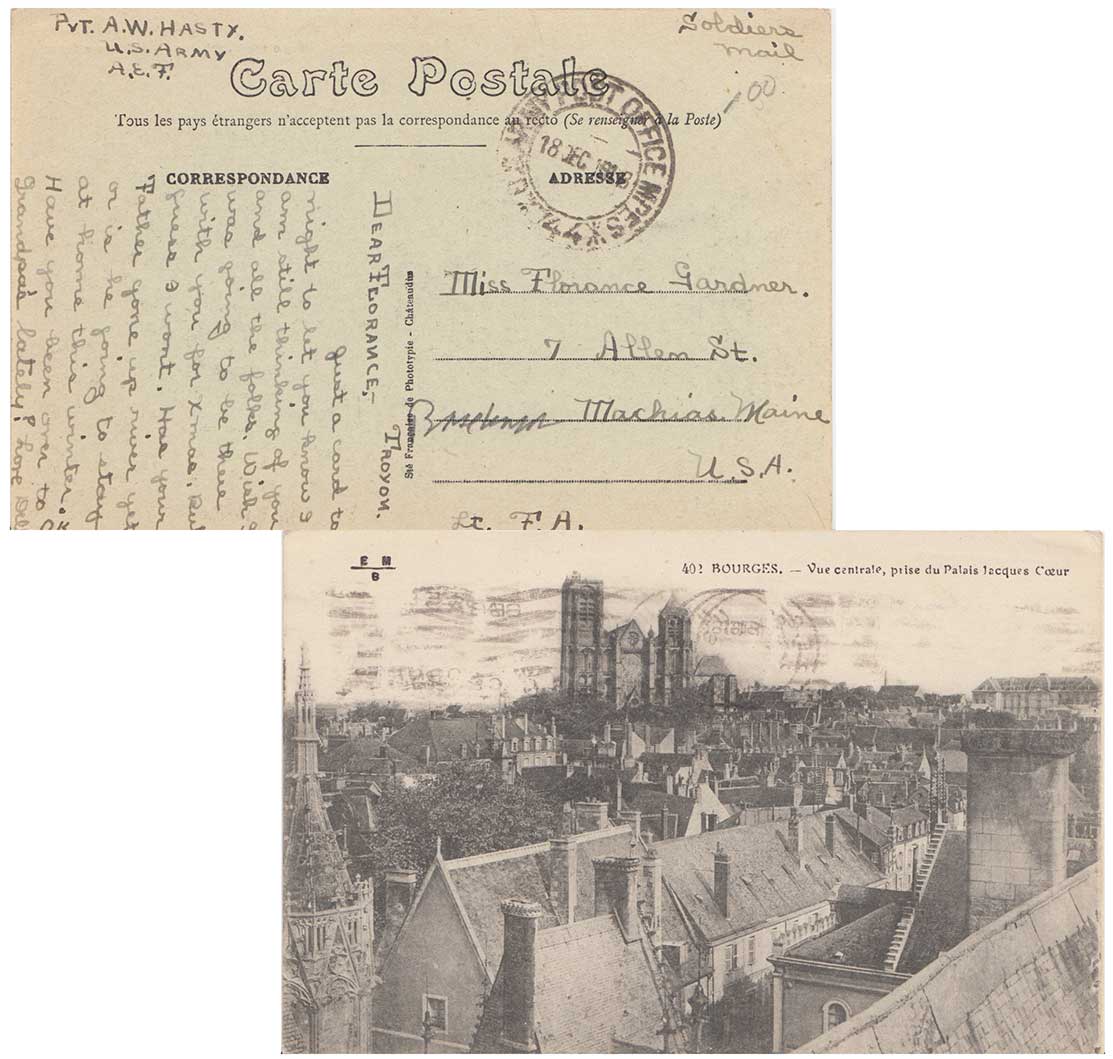 PVT. A.W. HASTY.
U.S. ARMY
A.E.F.
Soldiers
Mail
Carte Postale
Tous les pays étrangers n'acceptent pas la correspondance au recto (Se renseigner à la Poste)
CORRESPONDANCE
ADRESSE
POST OFFICE MPES
18 DEC
DEAR FLORANCE,-
TROYON.
Just a card to
night to let you know I
am still thinking of you
and all the folks. Wish I
was going to be there
with you for Xmas, but
guess I wont. Has your
Father gone up river yet
or is he going to stay
at home this winter.
Have you been over to
Grandpa's lately? Love
Sté Française de Phototypie - Châteaudun
Miss Florance Gardner.
7 Allen St.
Machias, Maine
U.S.A.
Lt. F.A.
E M
B
402 BOURGES. — Vue centrale, prise du Palais Jacques Cœur